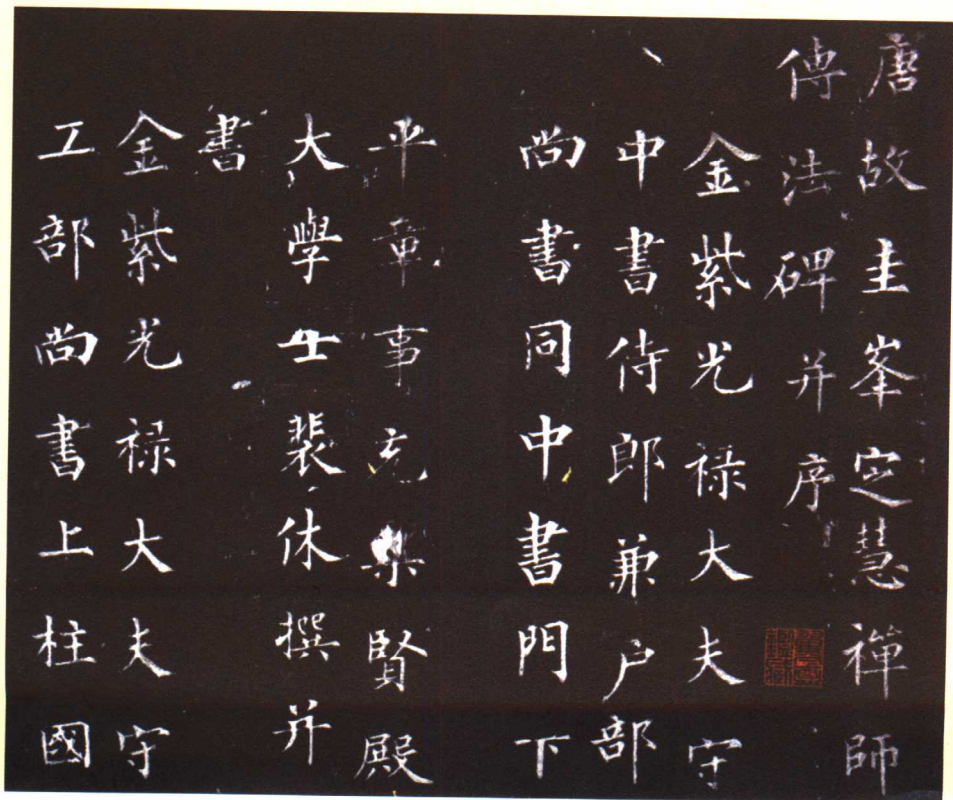 唐故圭峯定慧禪師
傳法碑并序
金紫光祿大夫守
中書侍郎兼户部
尚書同中書門下
平章事充集賢殿
大學士裴休撰并
書
金紫光祿大夫守
工部尚書上柱國